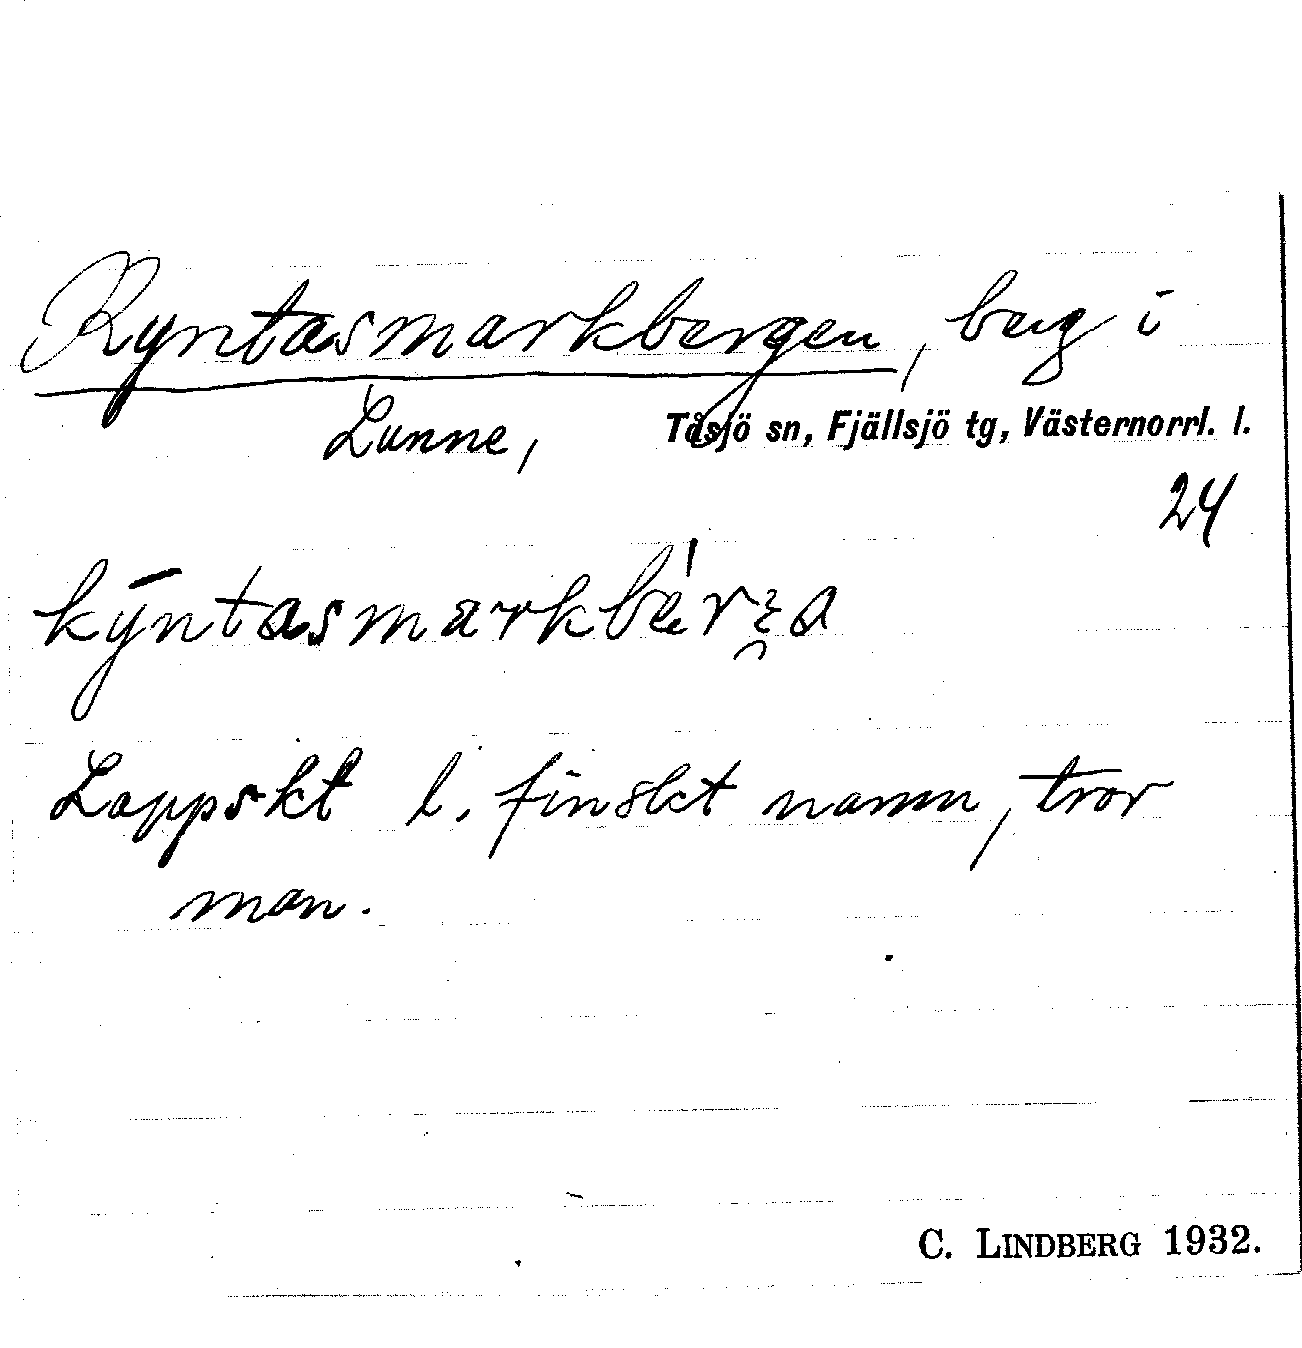 Kyntasmarkbergen, berg i
Lunne, Tåsjö sn, Fjällsjö tg, Västernorrl. l.
24
Lappskt l. finskt namn, tror
man.
C. LINDBERG 1932.